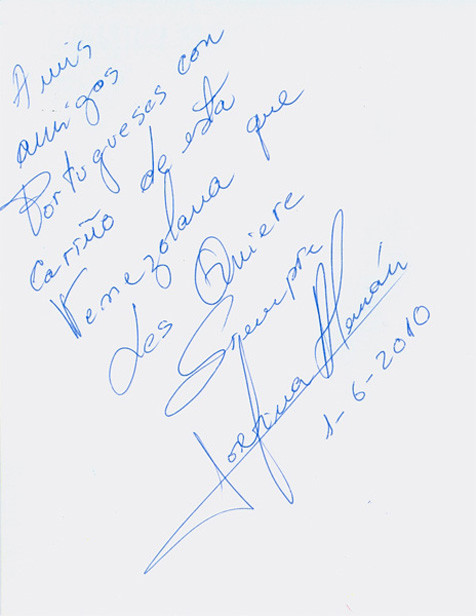 A mis
amigos
Portugueses con
Cariño de esta
Venezolana que
Les Quiere
Siempre
Josefina
1-6-2010